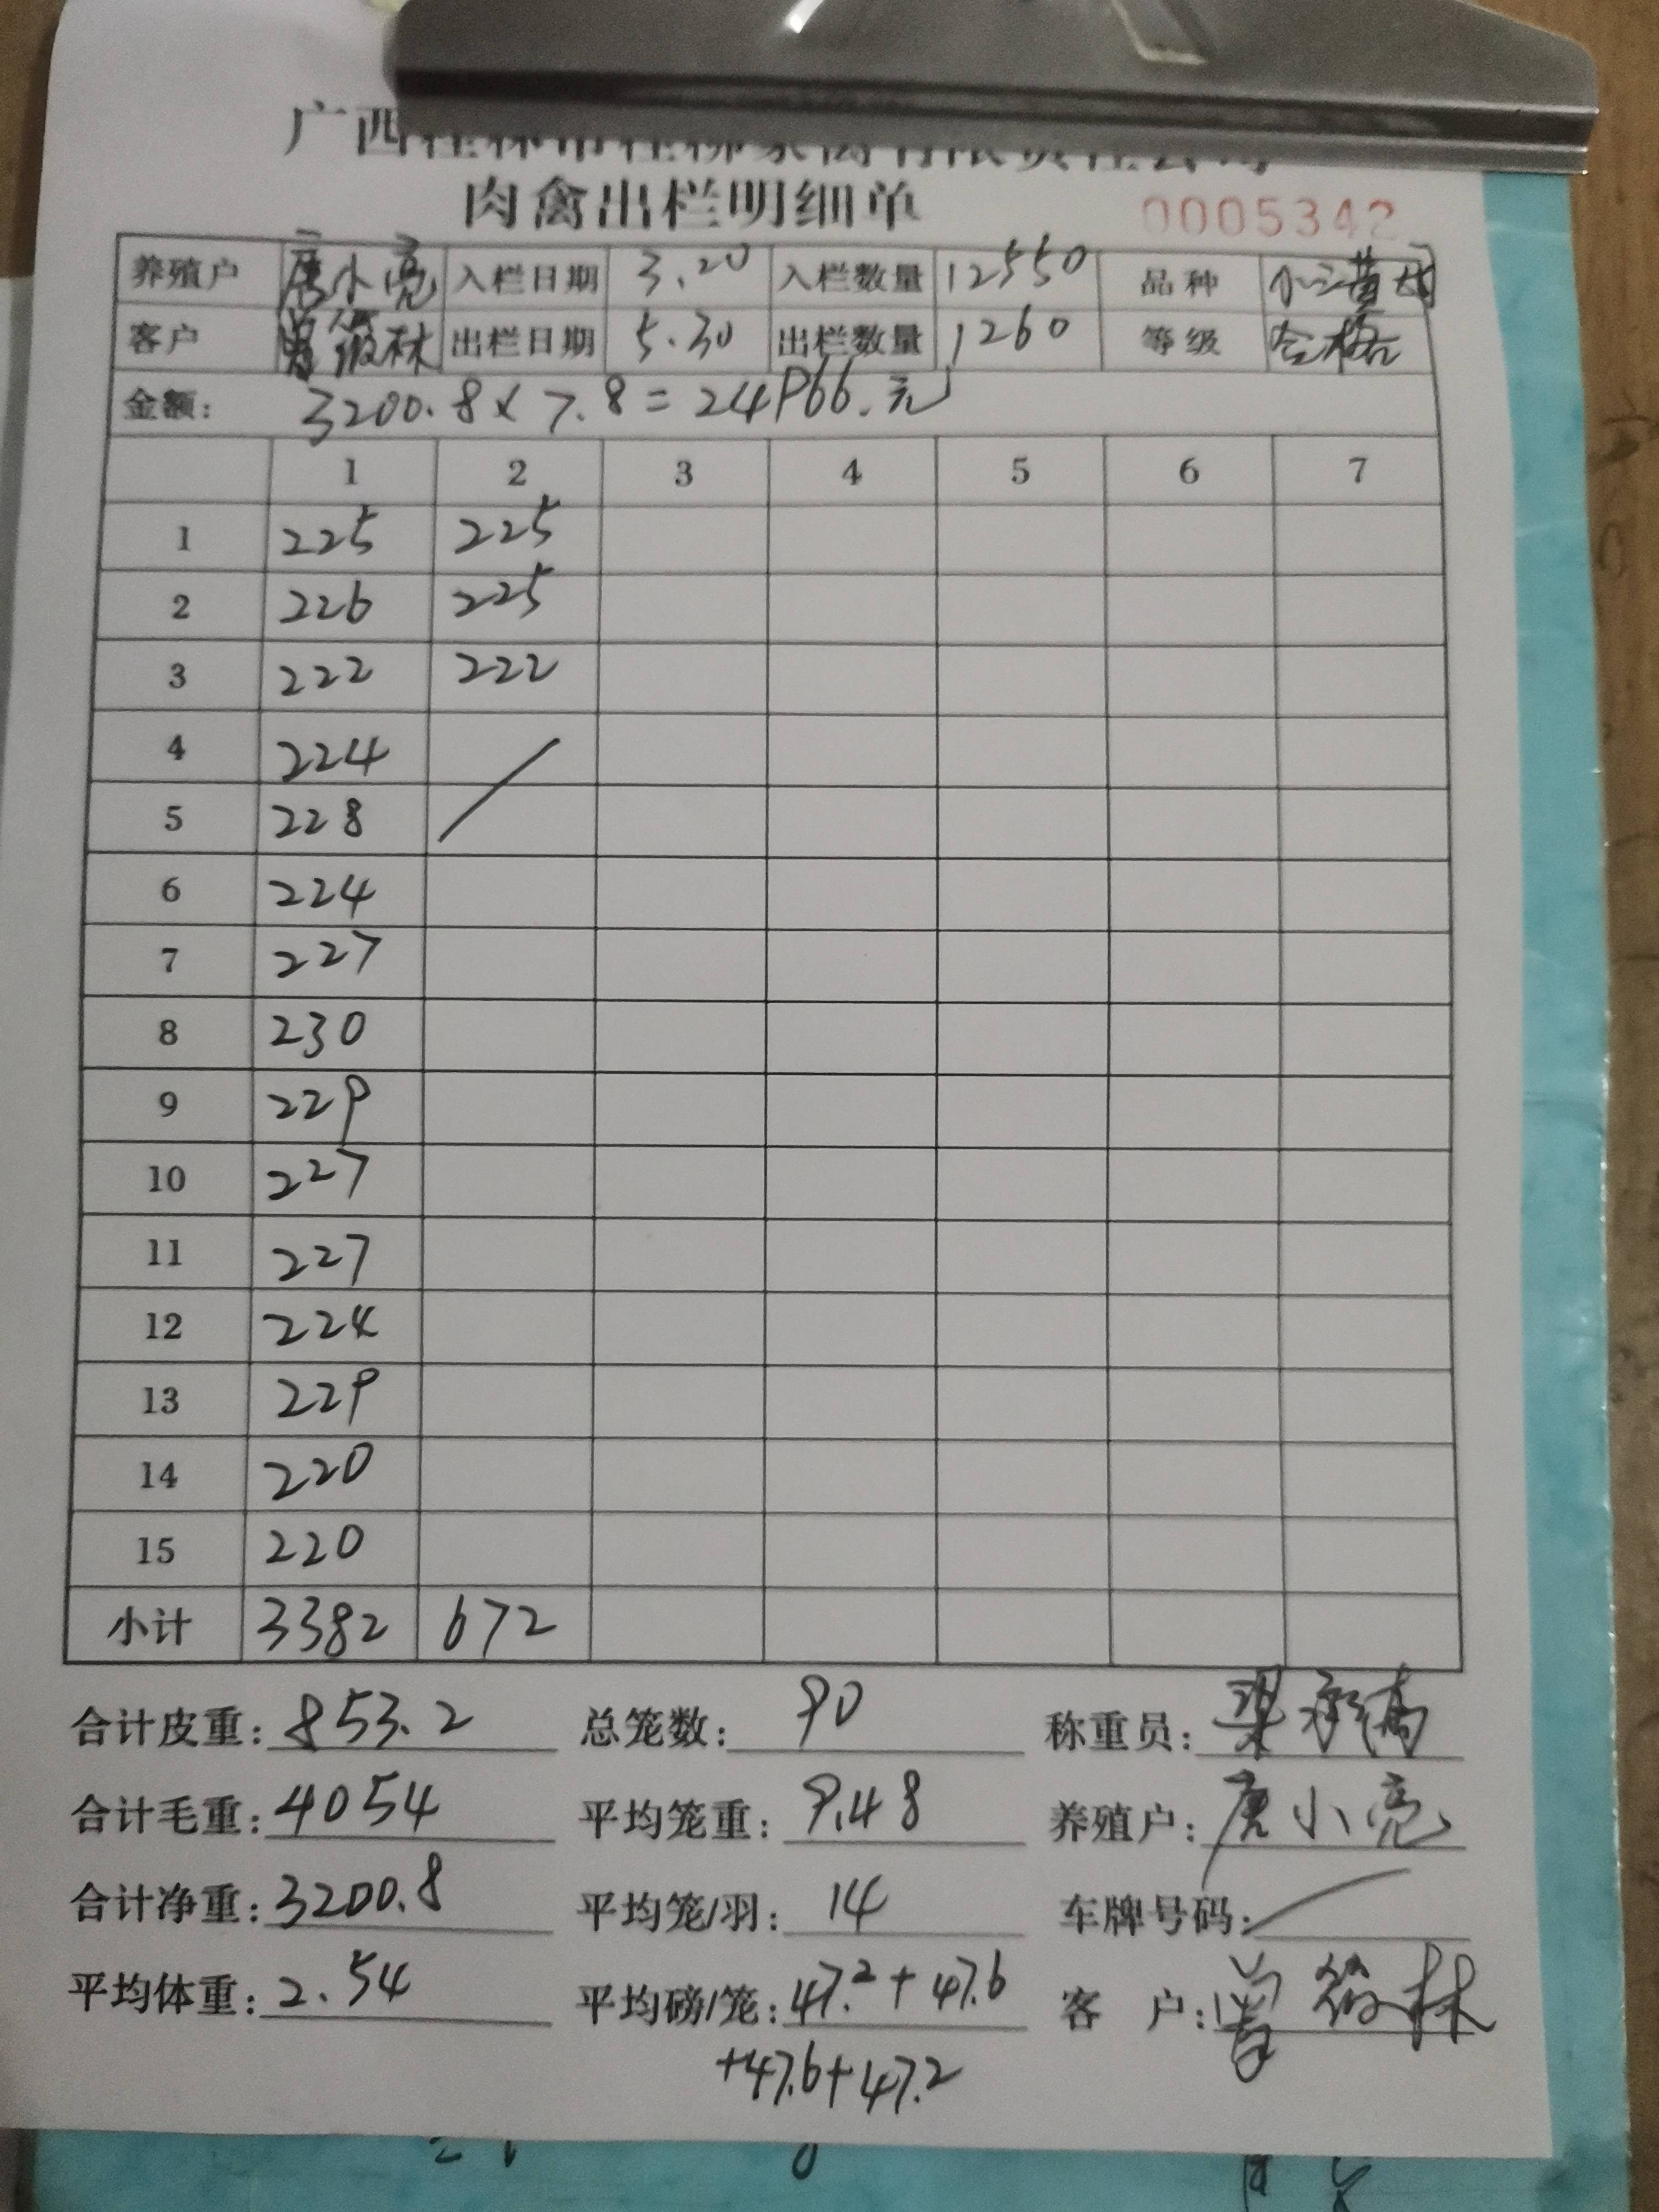 广西桂林市桂柳家禽有限责任公司
肉禽出栏明细单 0005342
养殖户 唐小亮 入栏日期 3.20 入栏数量 12550 品种 小三黄
客户 曾筱林 出栏日期 5.30 出栏数量 1260 等级 合格
金额: 3200.8×7.8=24966.元
1 2 3 4 5 6 7
1 225 225
2 226 225
3 222 222
4 224
5 228
6 224
7 227
8 230
9 229
10 227
11 227
12 224
13 229
14 220
15 220
小计 3382 672
合计皮重: 853.2 总笼数: 90 称重员: 梁
合计毛重: 4054 平均笼重: 9.48 养殖户: 唐小亮
合计净重: 3200.8 平均笼/羽: 14 车牌号码:
平均体重: 2.54 平均磅/笼: 47.2+47.6 客 户: 曾筱林
+47.6+47.2